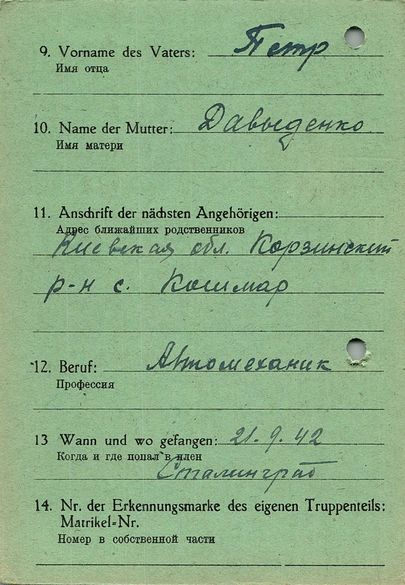 9. Vorname des Vaters: Петр
Имя отца
10. Name der Mutter: Давыденко
Имя матери
11. Anschrift der nächsten Angehörigen:
Адрес ближайших родственников
Киевская обл. Корзинский
р-н с. Кошмар
12. Beruf: Автомеханик
Профессия
13 Wann und wo gefangen: 21.9.42
Когда и где попал в плен
Сталинград
14. Nr. der Erkennungsmarke des eigenen Truppenteils:
Matrikel=Nr.
Номер в собственной части